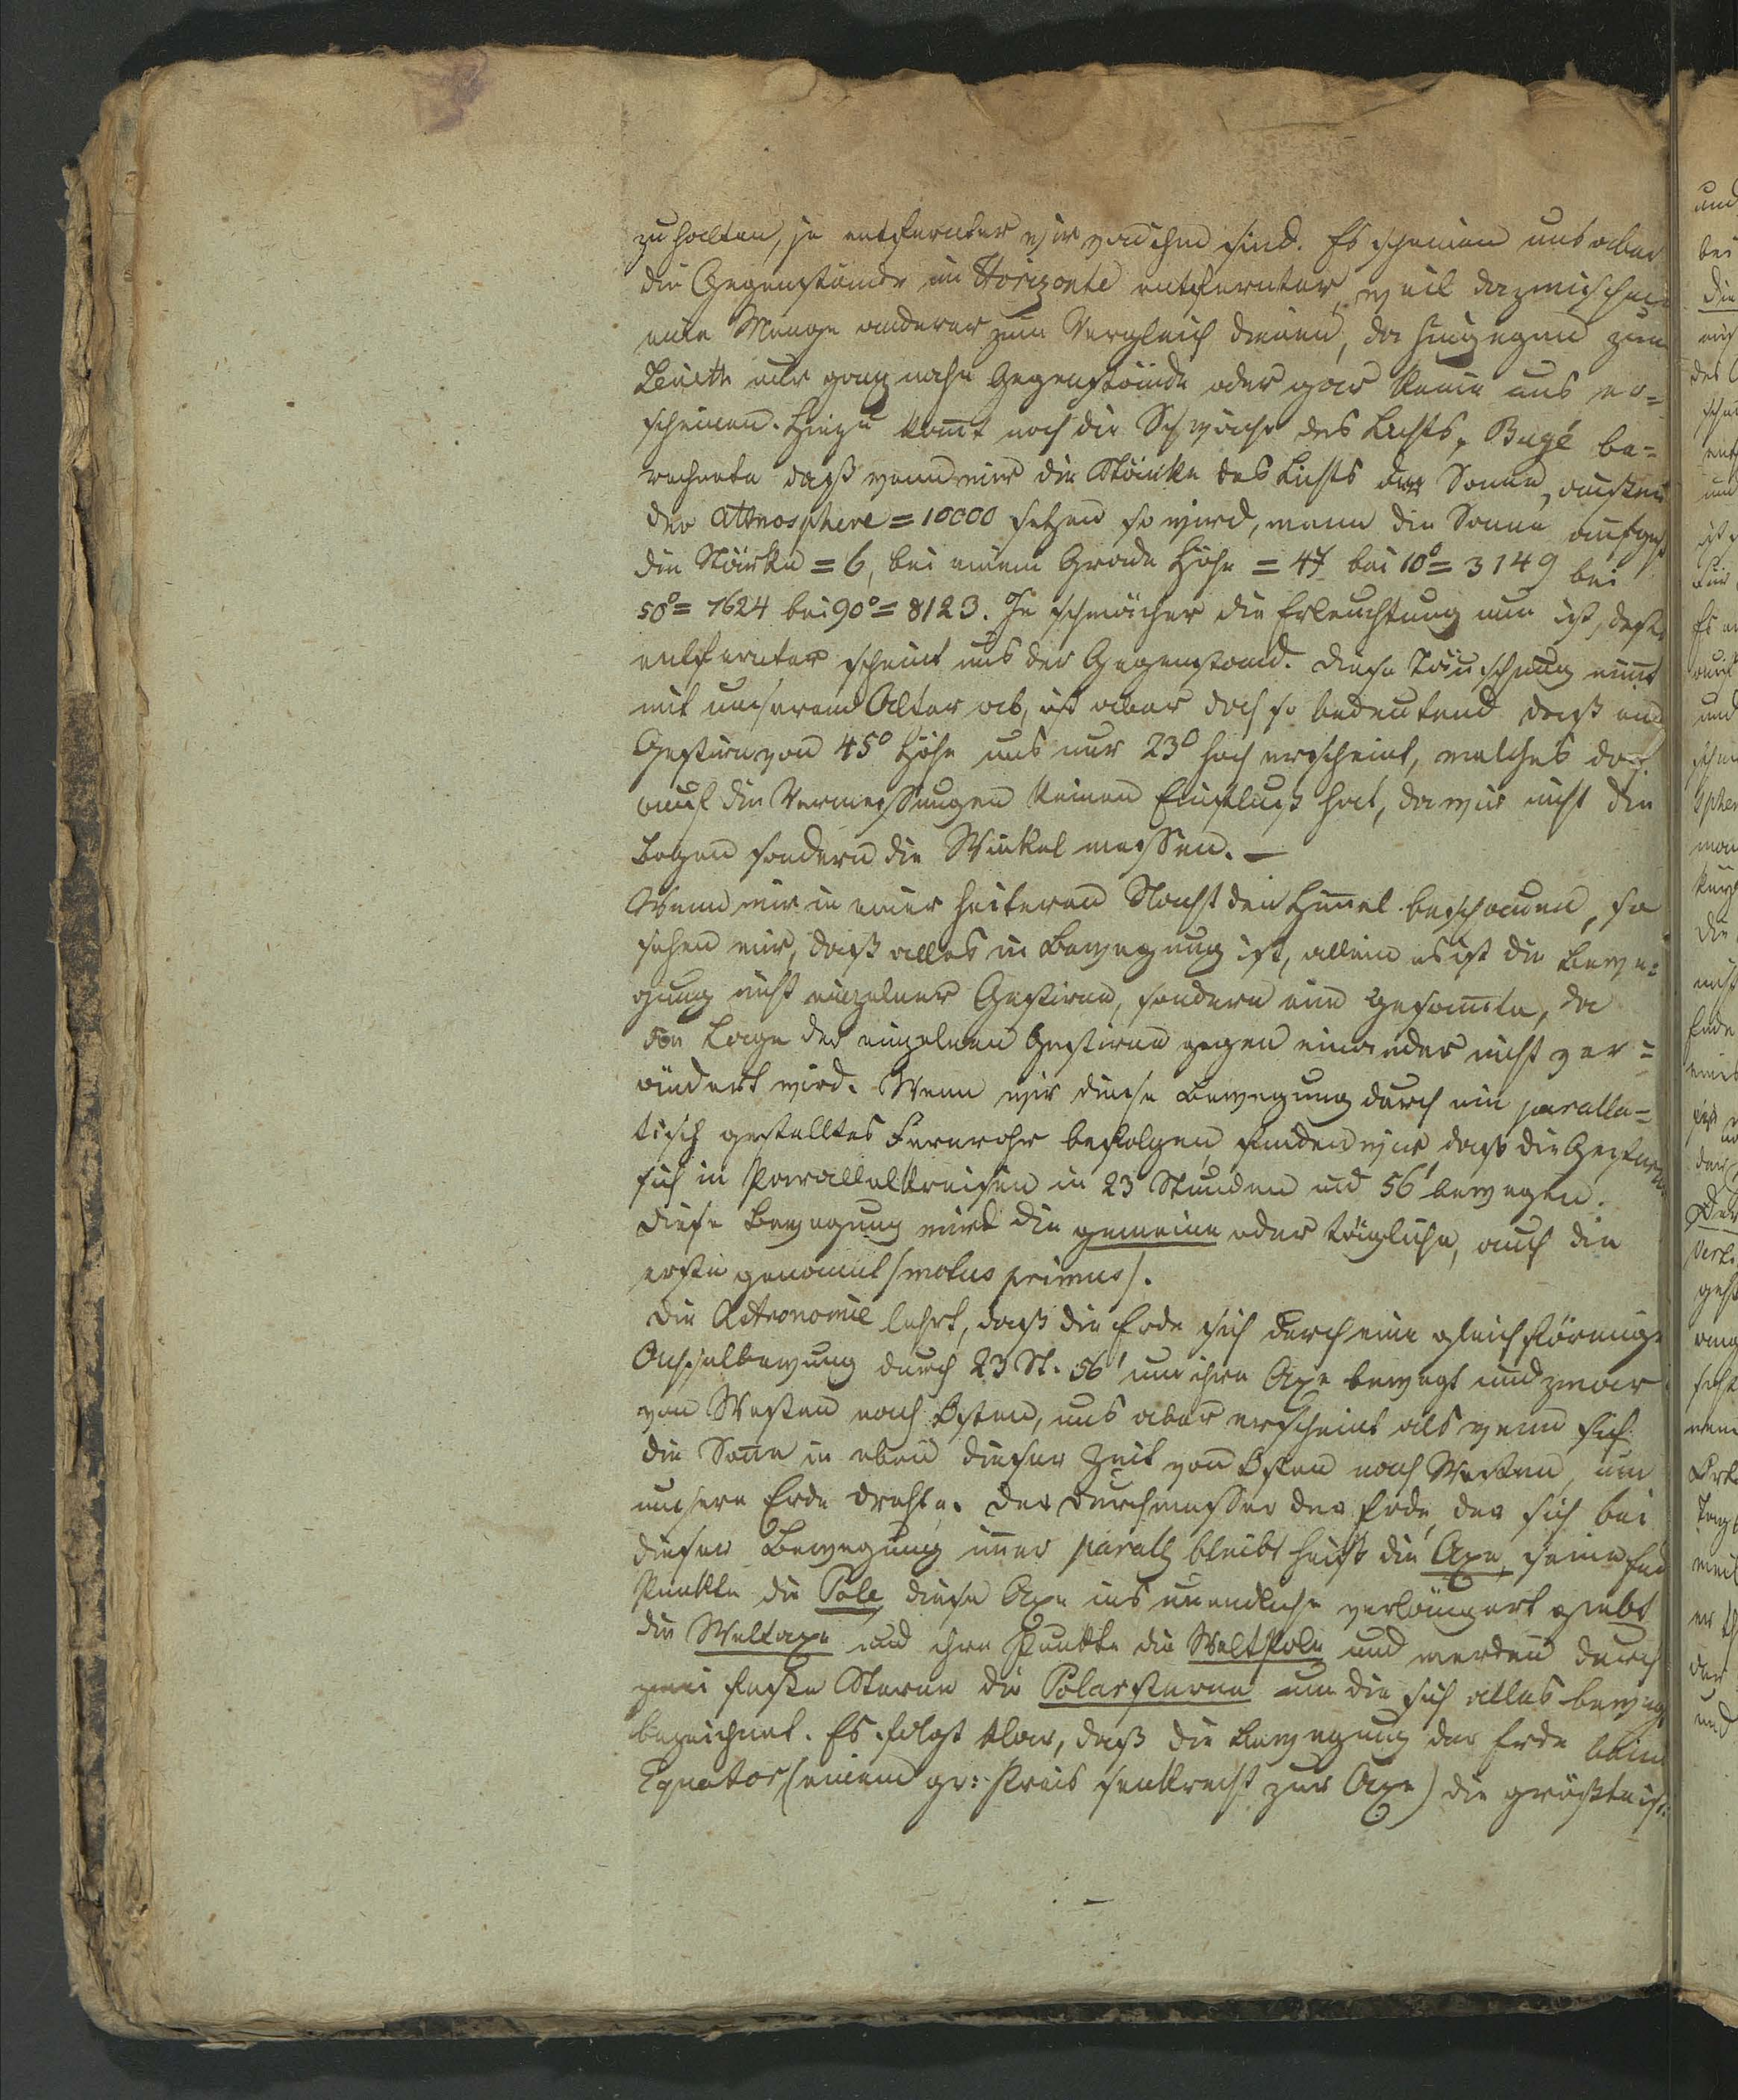 zu halten, je entfernter wir von ihm sind. Es scheinen uns aber
die Gegenstände im Horizonte entfernter, weil dazwischen
eine Menge anderer zum Vergleich dienen, da hingegen zum
Zenith nur ganz nahe Gegenstände oder gar keine uns er=
scheinen. Hiezu kom̅t noch die Schwäche des Lichts, Bugé be=
rechnete daß wenn wir die Stärke des Lichts der Sonne, außer
der Atmosphere = 10000 setzen so wird, wenn die Sonne aufgeht
die Stärke = 6, bei einem Grade Höhe = 47 bei 10° = 3149 bei
50° = 7624 bei 90° = 8123. Je schwächer die Erleuchtung nun ist, desto
entfernter scheint uns der Gegenstand. Diese Täuschung nim̅t
mit unserem Alter ab, ist aber doch so bedeutend daß ein
Gestirn von 45° Höhe uns nur 23° hoch erscheint, welches doch
auf die Vermessungen keinen Einfluß hat, da wir nicht die
Bogen sondern die Winkel messen. —
Wenn wir in einer heiteren Nacht den Him̅el beschauen, so
sehen wir, daß alles in Bewegung ist, allein es ist die Bewe=
gung nicht einzelner Gestirne, sondern eine gesam̅te, da
die Lage der einzelnen Gestirne gegen einander nicht ver=
ändert wird. Wenn wir diese Bewegung durch ein paralla=
tisch gestelltes Fernrohr befolgen, finden wir daß die Gestirne
sich in Parallelkreisen in 23 Stunden und 56' bewegen.
Diese Bewegung wird die gemeine oder tägliche, auch die
erste genannt (motus primus).
Die Astronomie lehrt, daß die Erde sich durch eine gleichförmige
Achselbewung durch 23 St. 56' um ihre Axe bewegt und zwar
von Westen nach Osten, uns aber erscheint als wenn sich
die Son̅e in eben dieser Zeit von Osten nach Westen, um
unsere Erde drehte. Der Durchmesser der Erde, der sich bei
dieser Bewegung im̅er parall bleibt heißt die Axe, seine End
Punkte die Pole, diese Axe ins unendliche verlängert giebt
die Weltaxe und ihre Punkte die WeltPole und werden durch
zwei feste Sterne die Polarsterne um die sich alles bewegt
bezeichnet. Es folgt klar, daß die Bewegung der Erde beim
Equator (einem gr: Kreis senkrecht zur Axe) die größte ist: